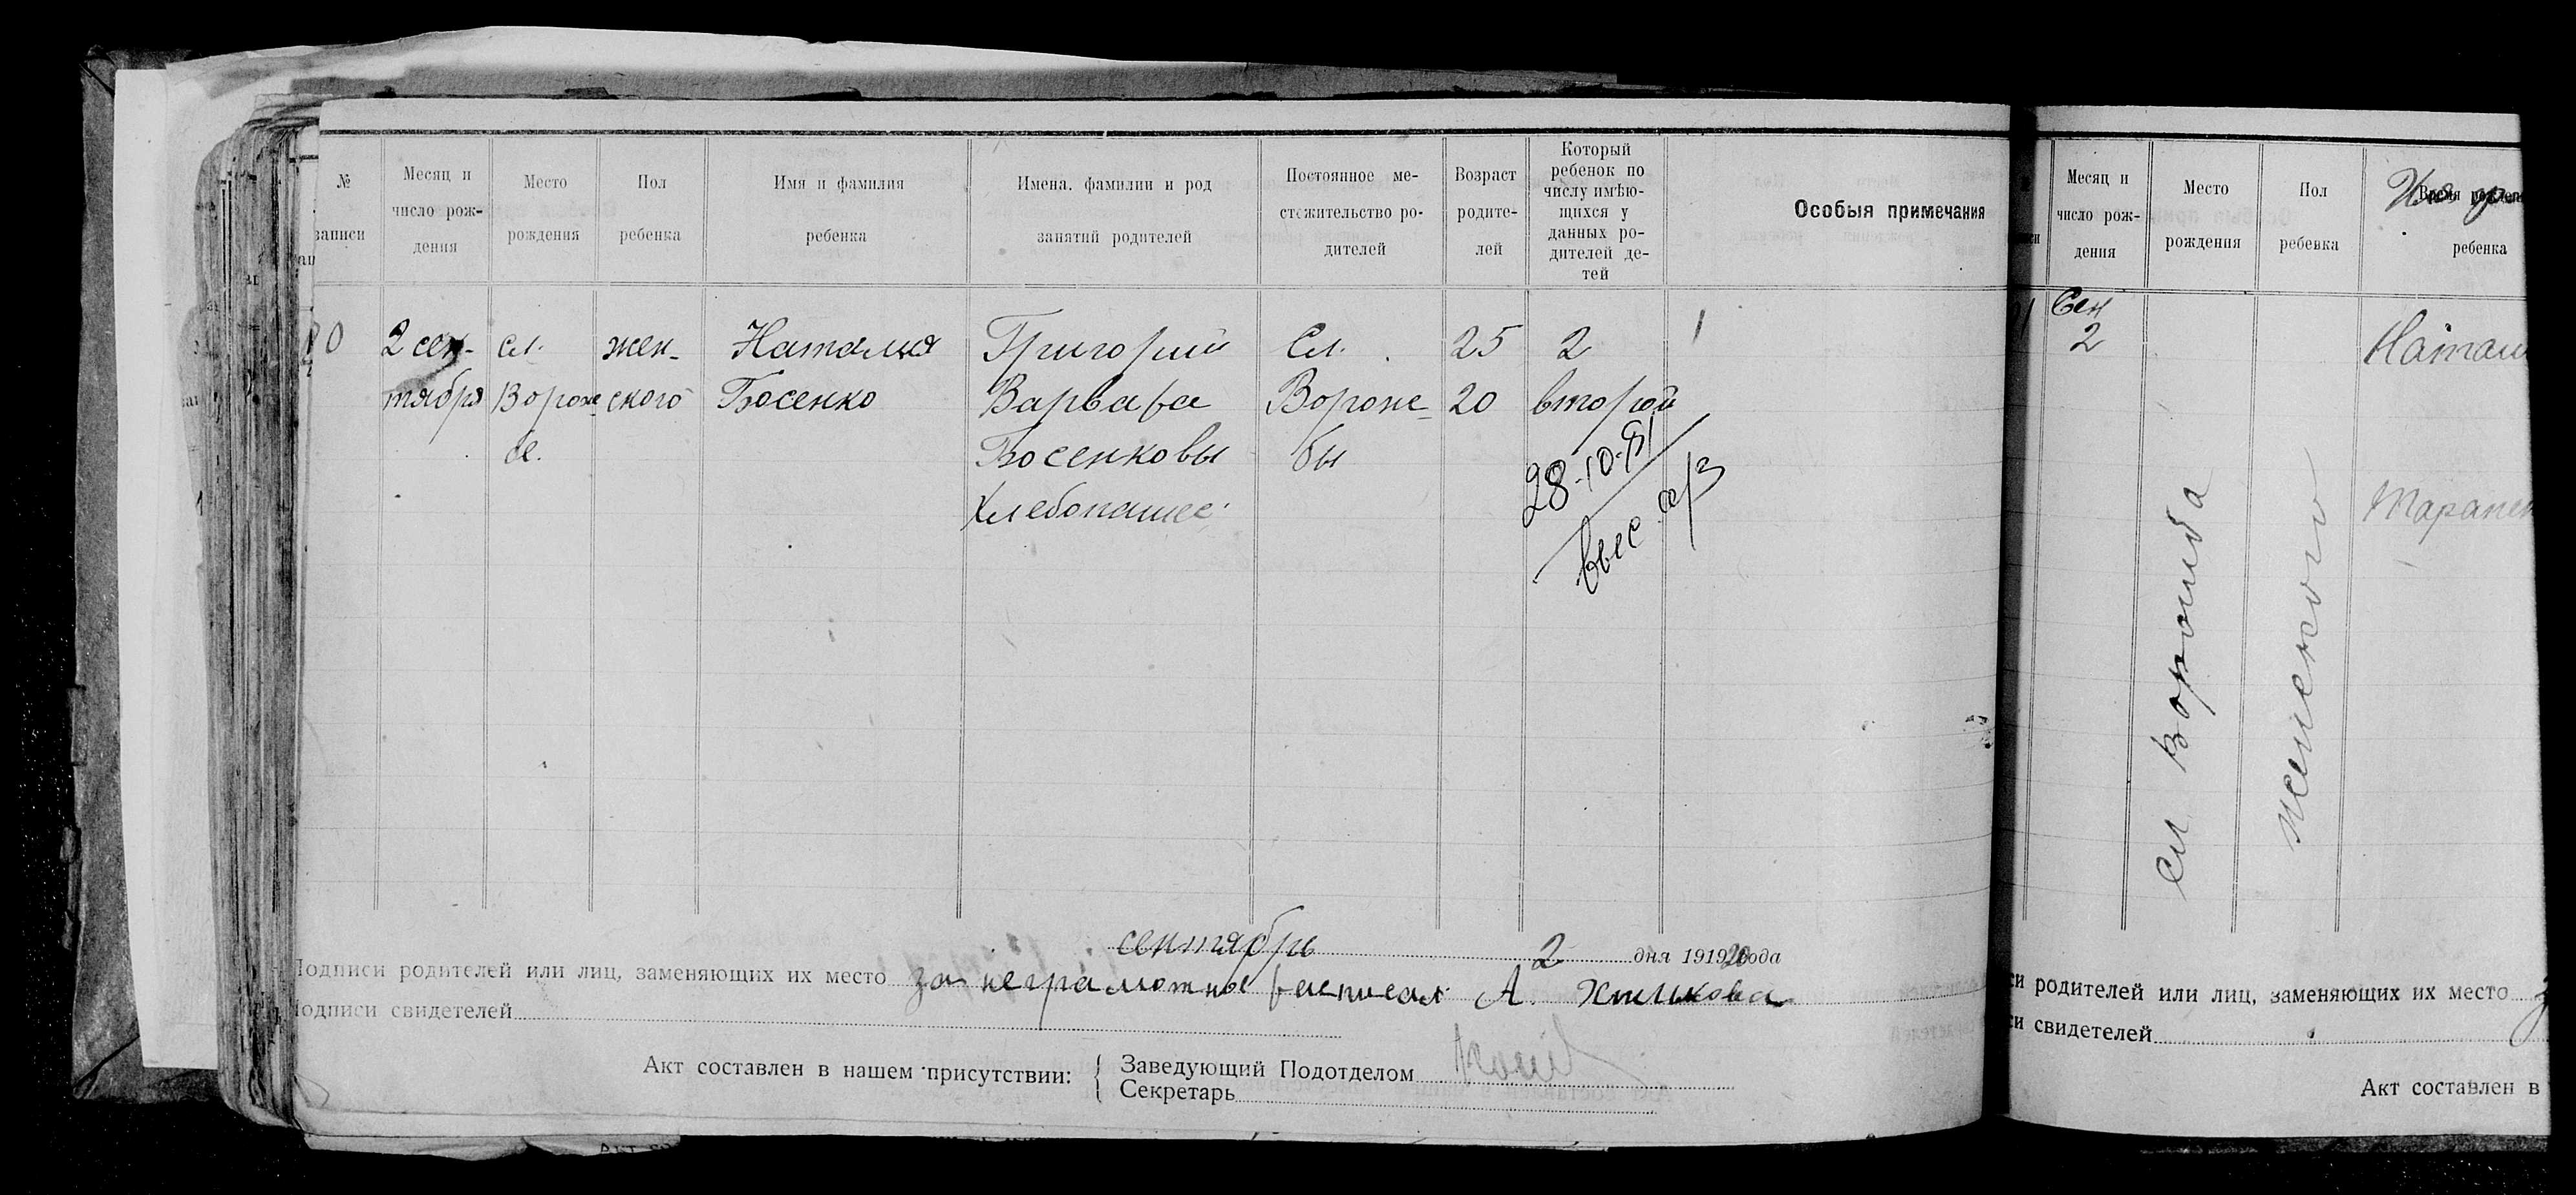 № записи
Месяц и число рождения
Место рождения
Пол ребенка
Имя и фамилия ребенка
Имена. фамилии и род занятий родителей
Постоянное местожительство родителей
Возраст родителей
Который ребенок по числу имѣющихся у данных родителей детей
Особыя примечания
0
2 сен-
тября
сл.
Вороне
бе.
жен-
ского
Наталия
Босенко
Григорий
Варвара
Босенковы
Хлебопашес
Сл.
Вороне-
бы
25
20
2
второй
28-10-81
выс
сентябрь 2 дня 1919 20 года
Подписи родителей или лиц, заменяющих их место за неграмотные расписал А.
Подписи свидетелей
Акт составлен в нашем присутствии:
Заведующий Подотделом
Секретарь
Месяц и число рождения
Место рождения
Пол ребенка
ребенка
Сен
2
сл
женского
си родителей или лиц, заменяющих их место
си свидетелей
Акт составлен в